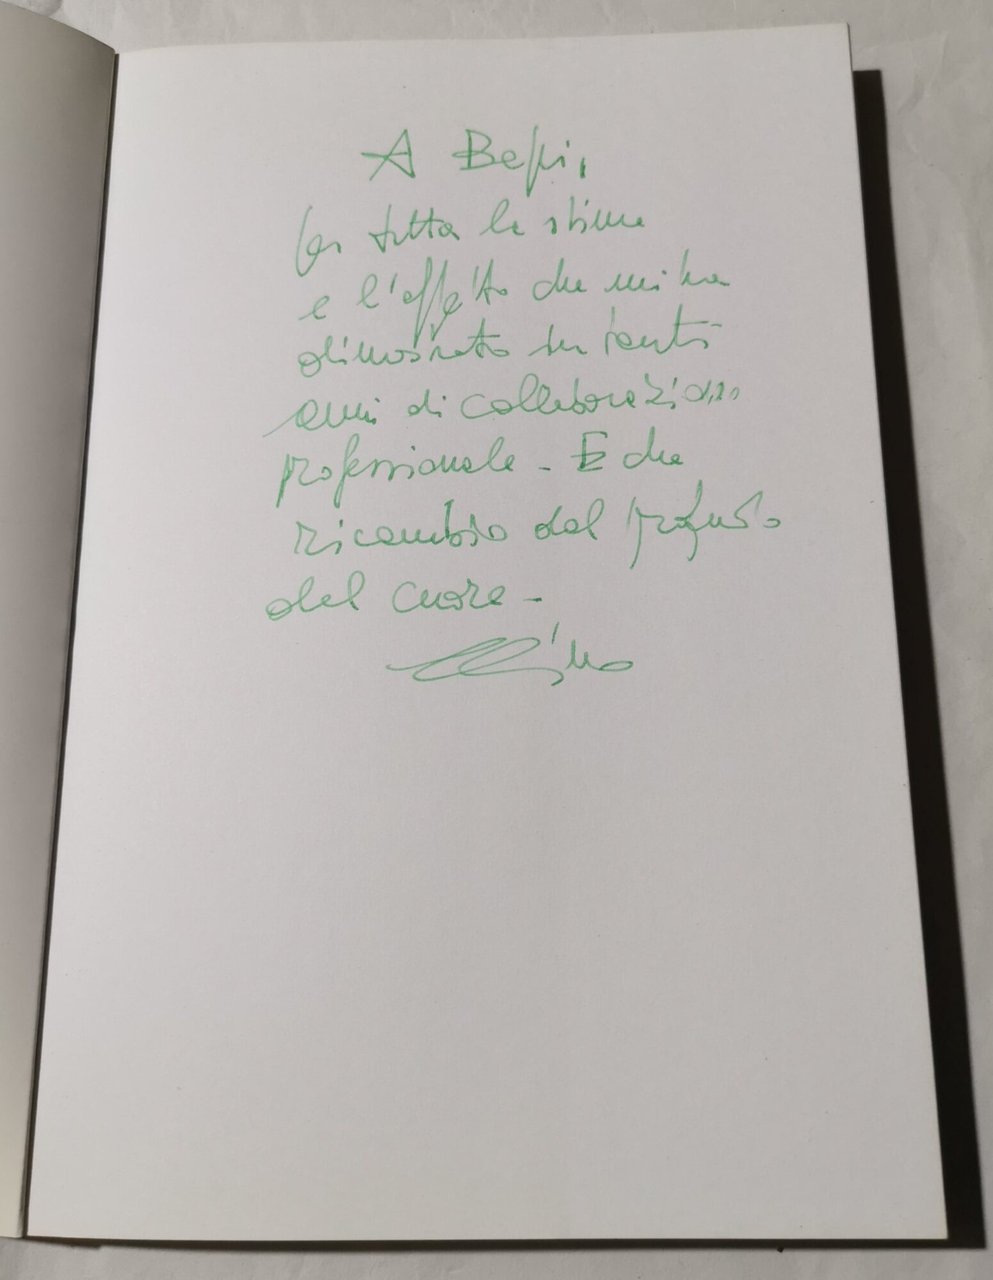 A Bepi,
per tutta la stima
e l'affetto che mi ha
dimostrato in tanti
anni di collaborazione
professionale - E che
ricambio dal profondo
del cuore -